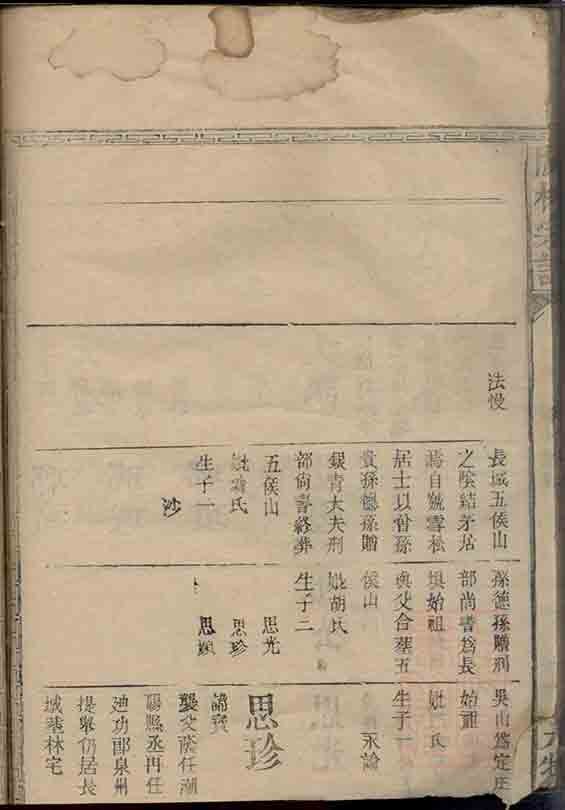 法慢
長城五侯山
之陰結茅居
焉自號雪松
居士以曾孫
貴孫德孫贈
銀青大夫刑
部尚書終葬
五侯山
妣 氏
生子一
沙
孫德孫贈刑
部尚書爲長
埧始祖
與父合塟五
侯山
妣胡氏
生子三
思光
思珍
思
吳山爲定庄
始祖
妣 氏
生子一
永諭
思珍
諱寶
襲父蔭任潮
陽縣丞再任
迪功郎泉州
提舉仍居長
城巷林宅
宗譜